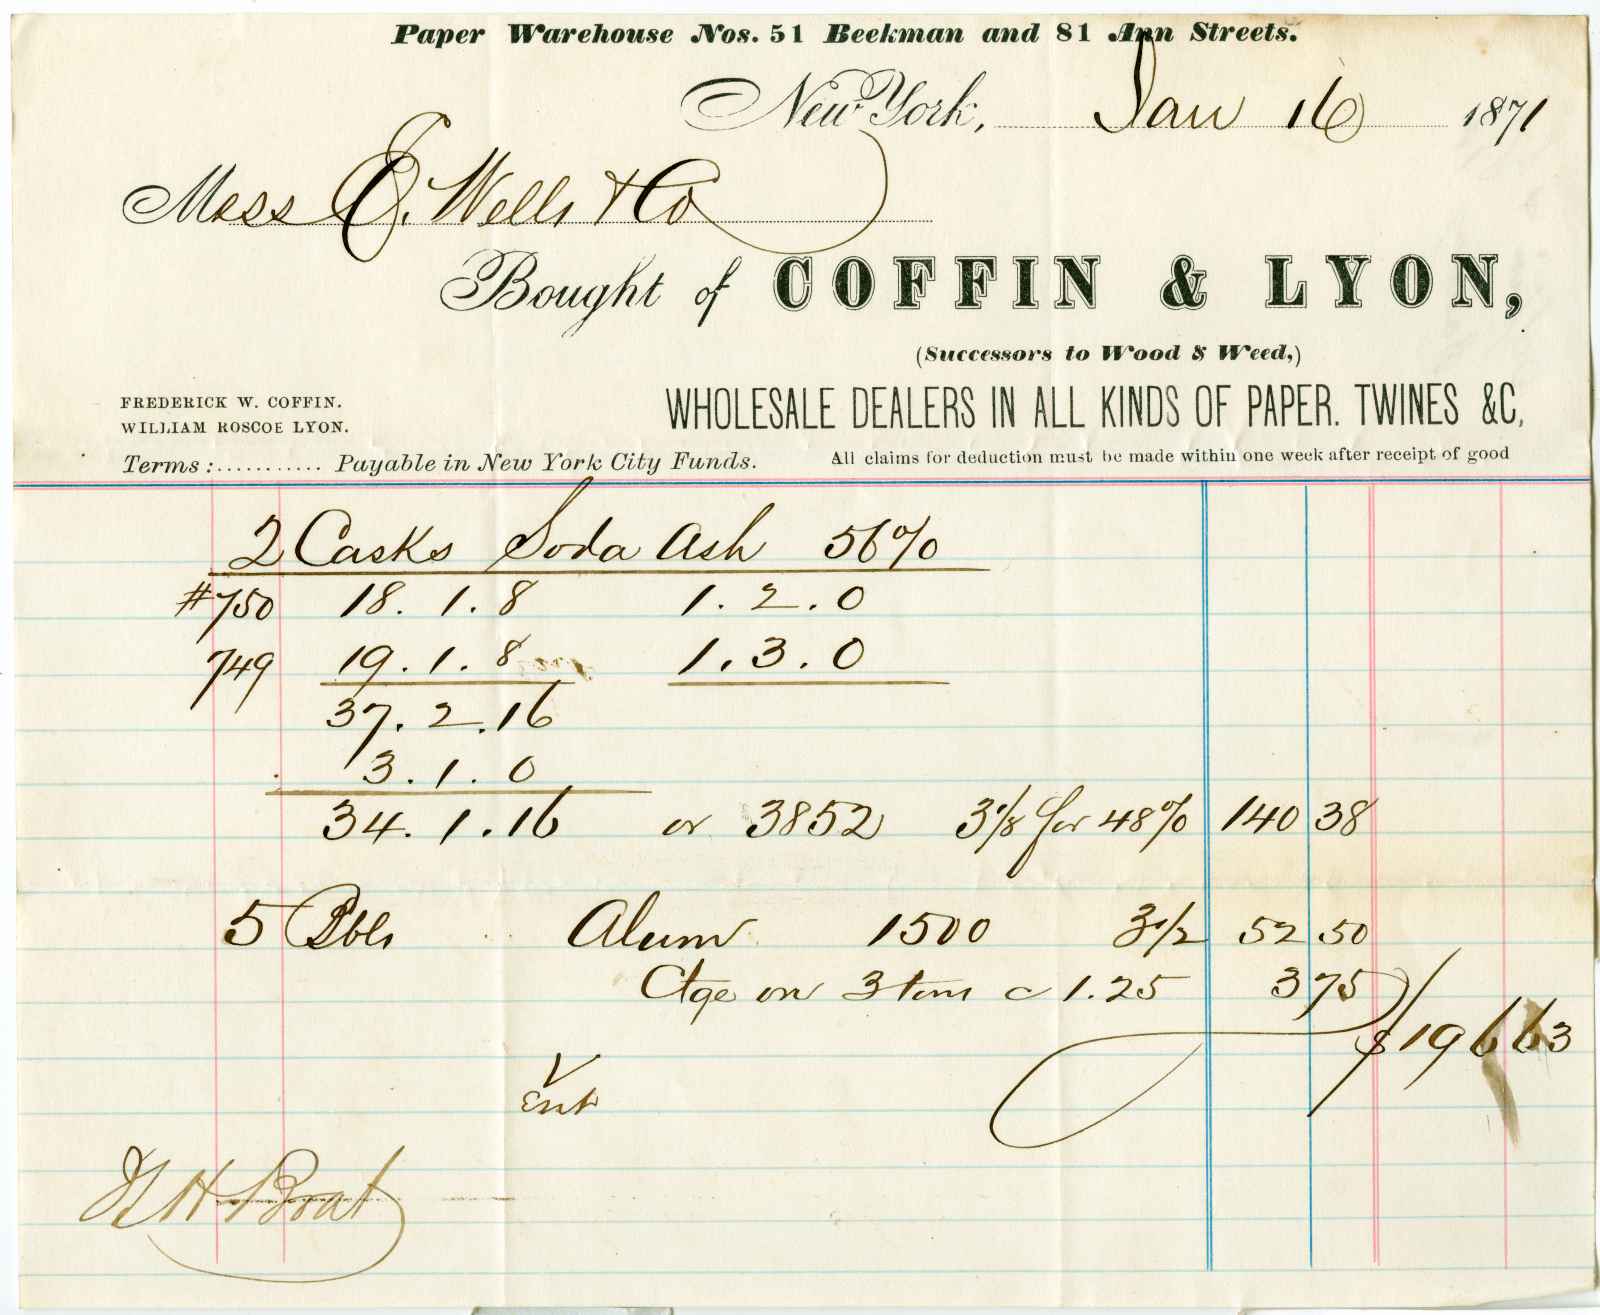 Paper Warehouse Nos. 51 Beekman and 81 Ann Streets.
New York, Jan 16 1871
Mess E. Wells & Co
Bought of COFFIN & LYON,
(Successors to Wood & Weed,)
FREDERICK W. COFFIN.
WILLIAM ROSCOE LYON.
WHOLESALE DEALERS IN ALL KINDS OF PAPER. TWINES &C,
Terms :........... Payable in New York City Funds. All claims for deduction must be made within one week after receipt of good
2 Casks Soda Ash 56%
#750 18. 1. 8 1. 2. 0
749 19. 1. 8 1. 3. 0
37. 2. 16
3. 1. 0
34. 1. 16 or 3852 3 1/8 for 48% 140 38
5 Bbls Alum 1500 3 1/2 52 50
Ctge on 3 tons c 1.25 3 75
$196 63
Ent
H Boat